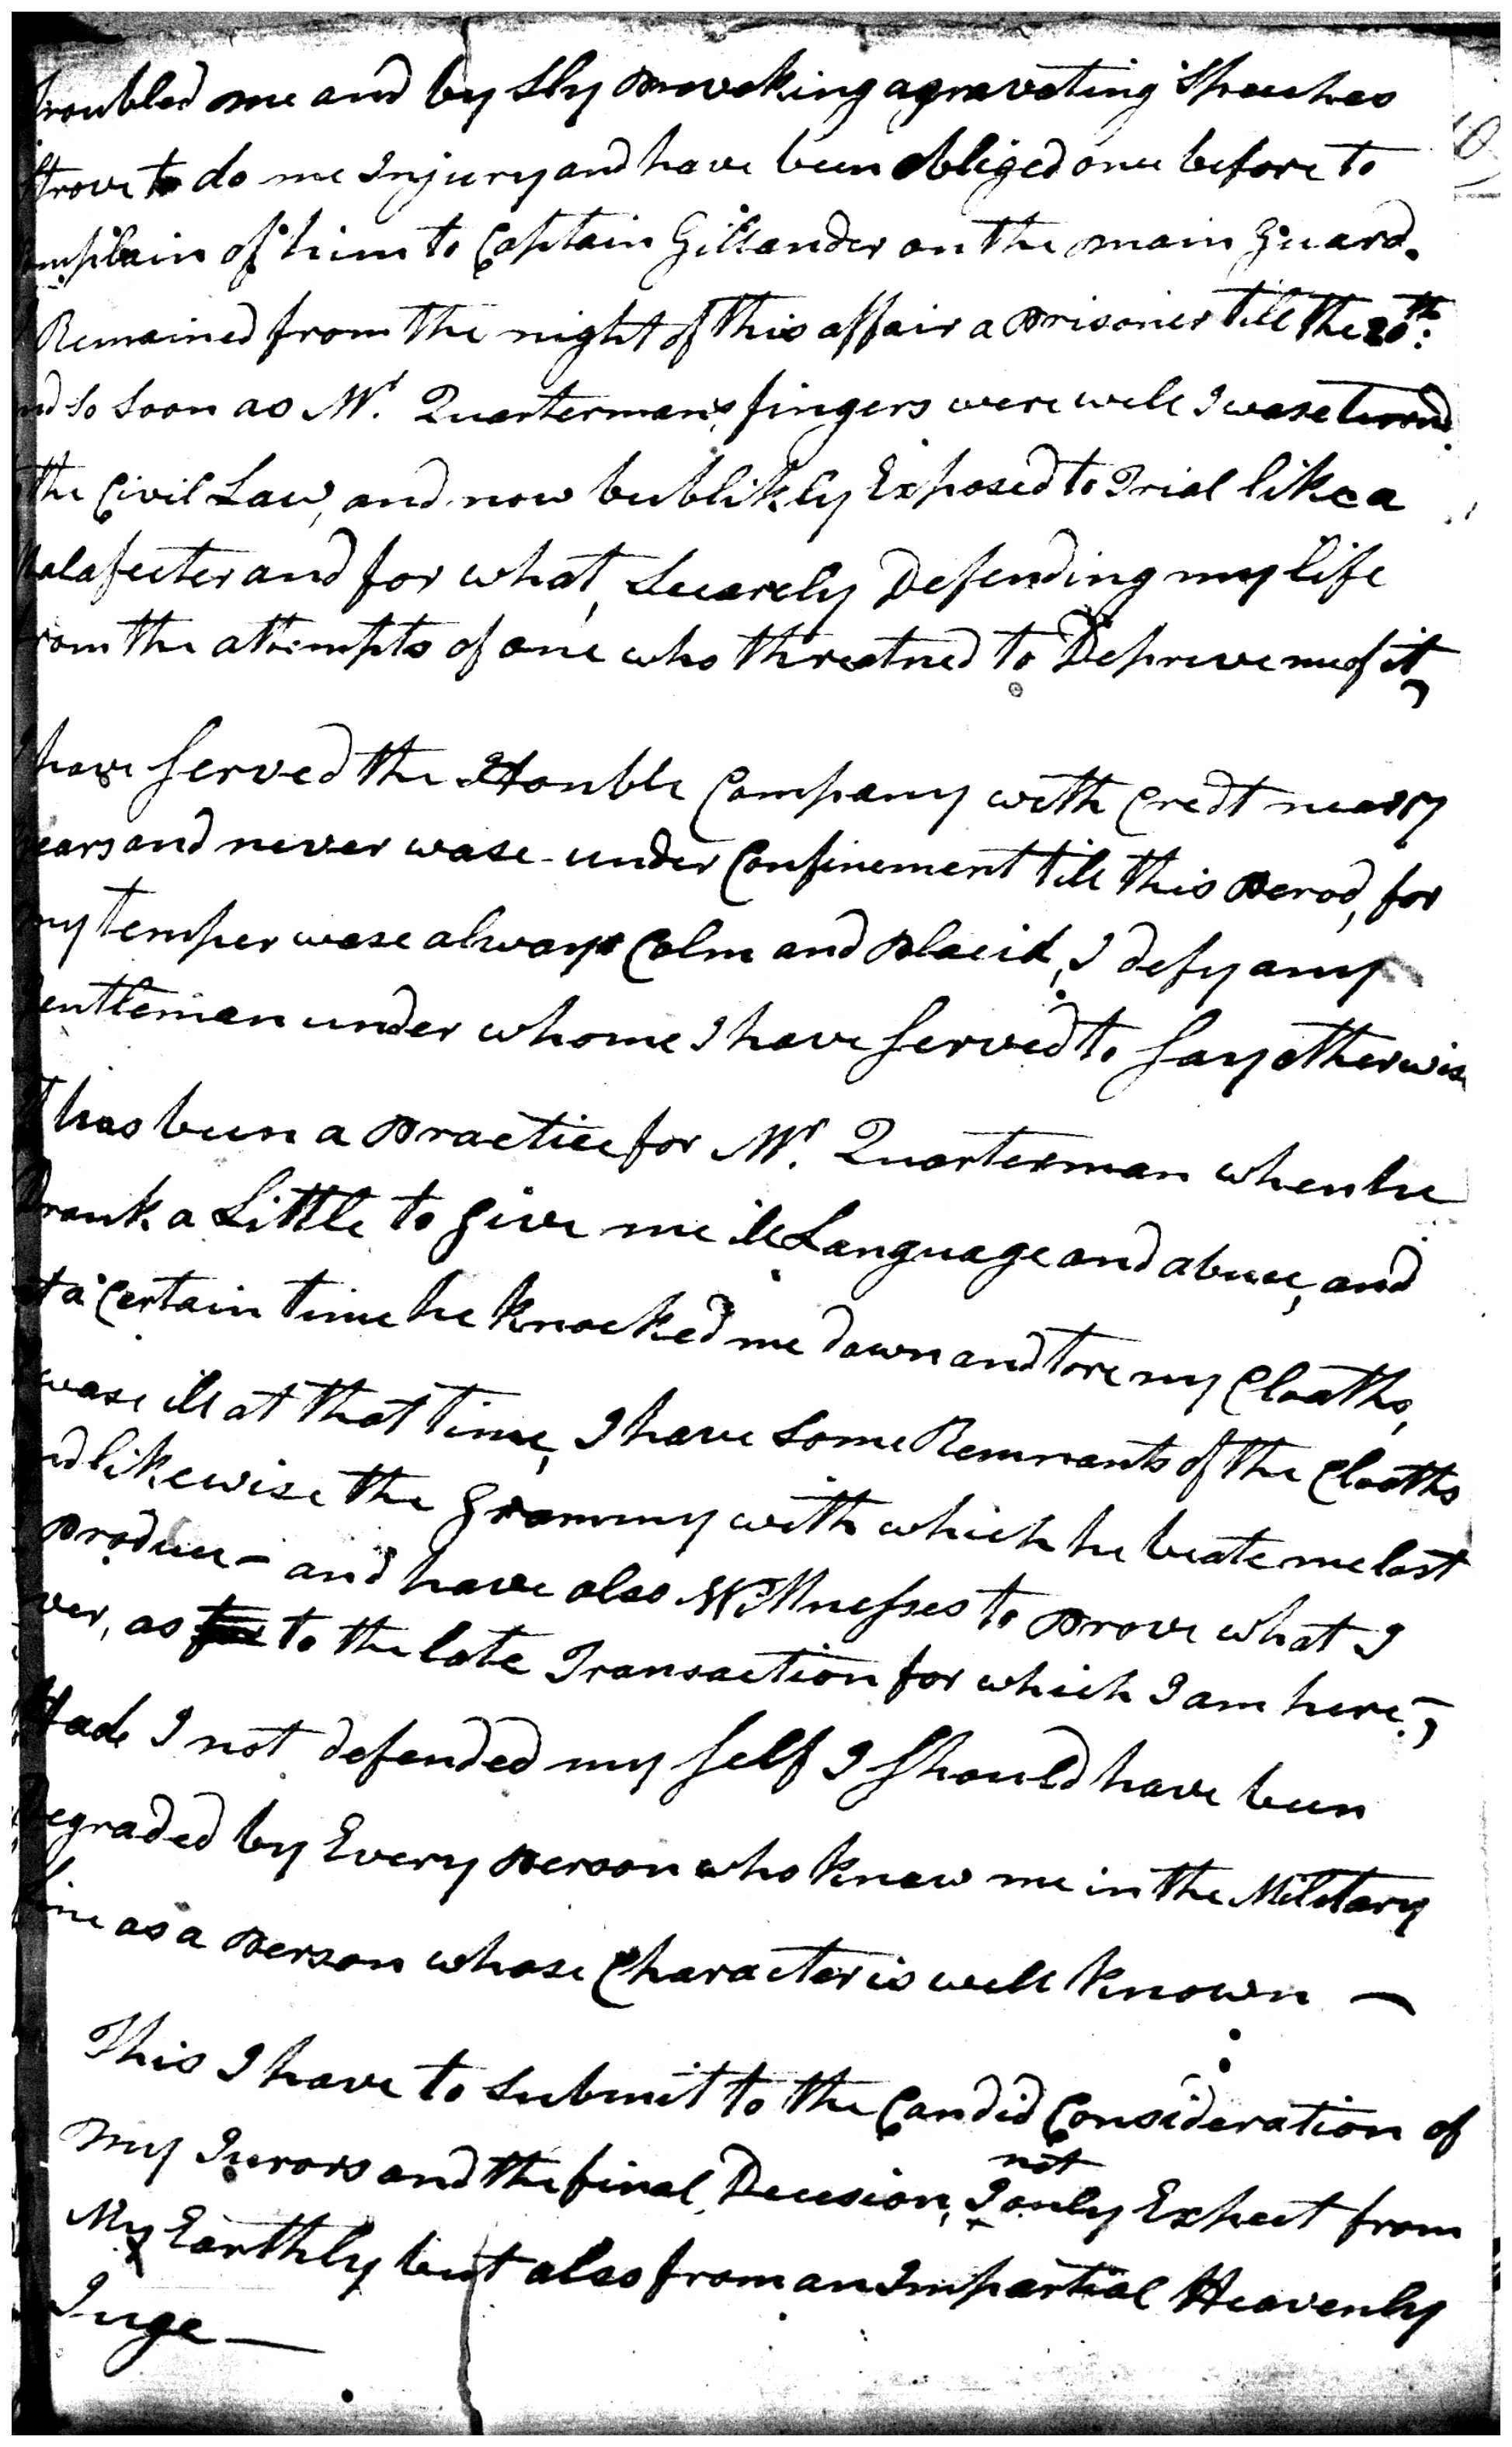 troubled me and by sly provoking agravating Speeches
strove to do me Injury and have been obliged once before to
omplain of him to Captain Gillander on the main Guard.
Remained from the night of this affair a prisoner till the 20th:
nd so soon as Mr. Quartermans fingers were well I wase
the Civil Law, and now bublikly Exposed to Trial like a
Malafecter and for what, Defending my life
from the attempts of one who threatned to Depreve me of it,
have served the Honble Company with Credt nearly
years and never wase under Confinement till this perod, for
my temper wase always Calm and placid, I defy any
Gentleman under whome I have served to say otherwise
It has been a practice for Mr. Quarterman when he
Drank a Little to give me ill Language and abuse, and
at a Certain time he knocked me down and tore my Cloaths,
wase ill at that time, I have some Remnants of the Cloaths
nd likewise the with which he beate me last
produce - and have also Wittnesses to prove what I
ver, as to the late Transaction for which I am here,
Hade I not defended my self I should have been
Degraded by Every person who knew me in the Military
line as a person whose Character is well known -
This I have to submit to the Candid Consideration of
my Jurors and the final Decision, I not only Expect from
My Earthly but also from an Impartial Heavenly
Juge -